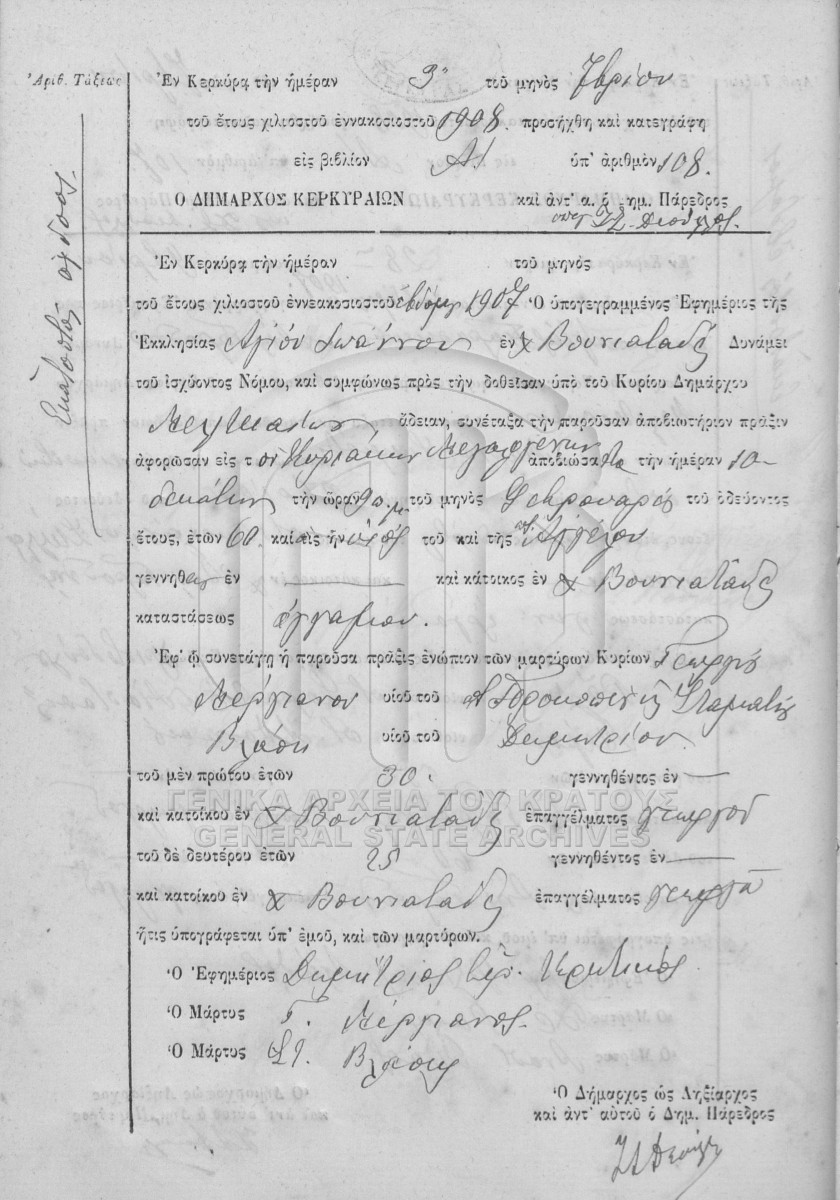 Ἀριθ. Τάξεως
Ἑκατοστὸς ὄγδοος.
Ἐν Κερκύρᾳ τὴν ἡμέραν 3 τοῦ μηνὸς
τοῦ ἔτους χιλιοστοῦ ἐννακοσιοστοῦ 1908. προσήχθη καὶ κατεγράφη
εἰς βιβλίον Α! ὑπ' ἀριθμὸν 108.
Ο ΔΗΜΑΡΧΟΣ ΚΕΡΚΥΡΑΙΩΝ καὶ ἀντ' α. ὁ Δημ. Πάρεδρος
Ἐν Κερκύρᾳ τὴν ἡμέραν τοῦ μηνὸς
τοῦ ἔτους χιλιοστοῦ ἐννεακοσιοστοῦ ἑβδόμῳ 1907 Ὁ ὑπογεγραμμένος Ἐφημέριος τῆς
Ἐκκλησίας Ἁγίου Ἰωάννου ἐν χ Βουνιατάδες Δυνάμει
τοῦ ἰσχύοντος Νόμου, καὶ συμφώνως πρὸς τὴν δοθεῖσαν ὑπὸ τοῦ Κυρίου Δημάρχου
ἄδειαν, συνέταξα τὴν παροῦσαν ἀποβιωτήριον πρᾶξιν
ἀφορῶσαν εἰς τ ὸν Κυριάκην ἀποβιώσα τὴν ἡμέραν 10-
δεκάτην τὴν ὥραν 9 π.μ. τοῦ μηνὸς τοῦ ὁδεύοντος
ἔτους, ἐτῶν 60. καὶ εἰς ἦν υἱὸς τοῦ καὶ τῆς Ἀγγέλου
γεννηθεὶς ἐν καὶ κάτοικος ἐν χ Βουνιατάδες
καταστάσεως ἔγγαμου.
Ἐφ' ᾧ συνετάγη ἡ παροῦσα πρᾶξις ἐνώπιον τῶν μαρτύρων Κυρίων Γεωργίου
Μέργιανου υἱοῦ τοῦ Σταματίου
Βλάση υἱοῦ τοῦ Δημητρίου.
τοῦ μὲν πρώτου ἐτῶν 30. γεννηθέντος ἐν
καὶ κατοίκου ἐν χ Βουνιατάδες ἐπαγγέλματος γεωργοῦ
τοῦ δὲ δευτέρου ἐτῶν 25 γεννηθέντος ἐν
καὶ κατοίκου ἐν χ Βουνιατάδες ἐπαγγέλματος γεωργοῦ
ἥτις ὑπογράφεται ὑπ' ἐμοῦ, καὶ τῶν μαρτύρων.
Ὁ Ἐφημέριος Δημήτριος Κρητικός
Ὁ Μάρτυς Γ. Μέργιανος.
Ὁ Μάρτυς Στ. Βλάσης
Ὁ Δήμαρχος ὡς Ληξίαρχος
καὶ ἀντ' αὐτοῦ ὁ Δημ. Πάρεδρος
ΓΕΝΙΚΑ ΑΡΧΕΙΑ ΤΟΥ ΚΡΑΤΟΥΣ
GENERAL STATE ARCHIVES